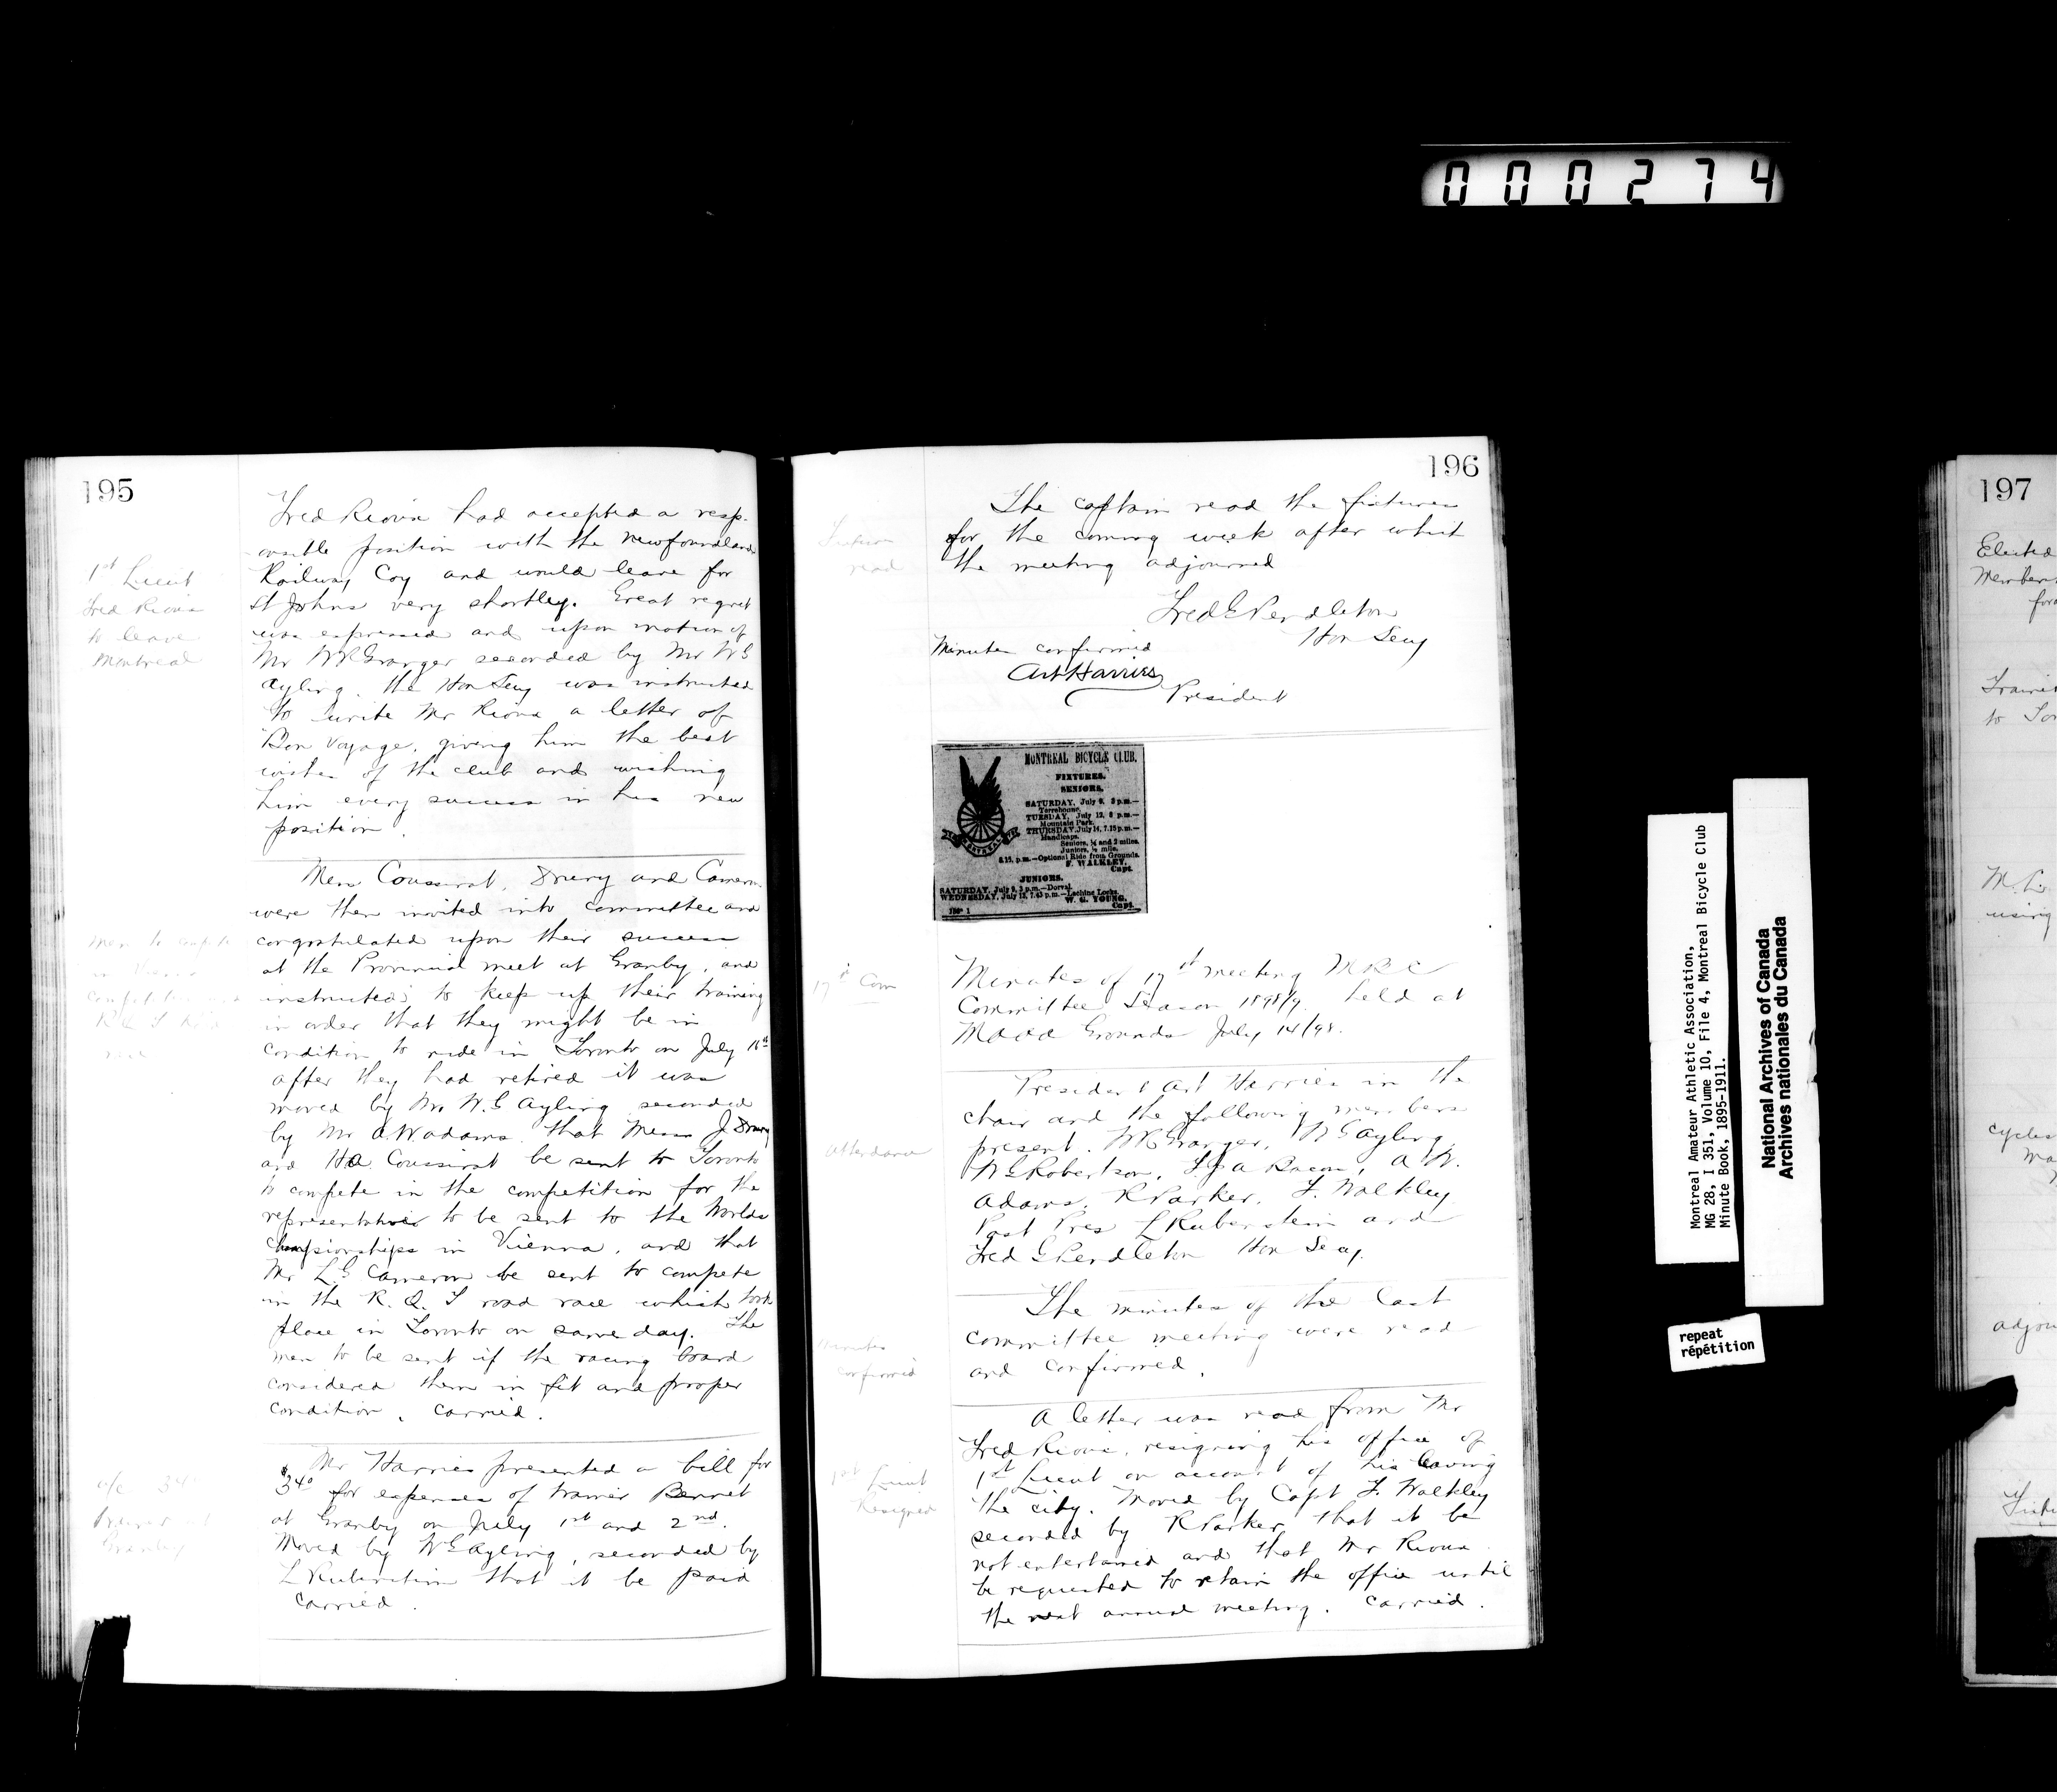 000274
195
Fred Rioux had accepted a resp-
onsible position with the Newfoundland
Railway Coy and would leave for
St Johns very shortly. Great regret
was expressed and upon motion of
Mr W R Granger seconded by Mr W G
Ayling, the Hon Secy was instructed
to write Mr Rioux a letter of
Bon Voyage, giving him the best
wishes of the club and wishing
him every success in his new
position.
1st Lieut
Fred Rioux
to leave
Montreal
Messrs Coussirat, Drury and Cameron
were then invited into committee and
congratulated upon their success
at the Provincial meet at Granby, and
instructed to keep up their training
in order that they might be in
condition to ride in Toronto on July
after they had retired it was
moved by Mr W. G Ayling seconded
by Mr A W Adams that Messrs J Drury
and HA Coussirat be sent to Toronto
to compete in the competition for the
representatives to be sent to the Worlds
Championships in Vienna, and that
Mr L. G Cameron be sent to compete
in the R. Q. T road race which took
place in Toronto on same day. The
men to be sent if the racing board
considered them in fit and proper
condition. Carried.
men to compete
in
Mr Harries presented a bill for
$34⁰ for expenses of trainer Bennet
at Granby on July 1st and 2nd.
Moved by W G Ayling, seconded by
L Rubenstein that it be paid
carried.
a/c 34
Trainer at
Granby
196
The captain read the fixtures
for the coming week after which
the meeting adjourned
Fred G Pendleton
Hon Secy
Minutes confirmed
Art Harries
President
read
MONTREAL BICYCLE CLUB.
FIXTURES.
SENIORS.
SATURDAY, July 9, 3 p.m.—
Terrebonne.
TUESDAY, July 12, 8 p.m.—
Mountain Park.
THURSDAY, July 14, 7.15 p.m.—
Handicaps.
Seniors, ¼ and 2 miles.
Juniors, ½ mile.
8.15. p.m.—Optional Ride from Grounds.
F. WALKLEY,
Capt.
JUNIORS.
SATURDAY, July 9, 3 p.m.—Dorval.
WEDNESDAY, July 13, 7.45 p.m.—Lachine Locks.
W. G. YOUNG,
Capt.
MONTREAL
17th Com
Minutes of 17th meeting M B C
Committee Season 1898/9. held at
MAAA Grounds July 14/98.
President Art Harries in the
chair and the following members
present. W R Granger, W G Ayling,
W G Robertson, F J A Bacon, A W.
Adams, R Parker, F. Walkley
Past Pres L Rubenstein and
Fred G Pendleton Hon Secy.
Attendance
The minutes of the last
committee meeting were read
and confirmed.
Minutes
confirmed
A letter was read from Mr
Fred Rioux, resigning his office of
1st Lieut on account of his leaving
the city. Moved by Capt F. Walkley
seconded by R Parker that it be
not entertained and that Mr Rioux
be requested to retain the office until
the next annual meeting. Carried.
1st Lieut
Resigned
Montreal Amateur Athletic Association,
MG 28, I 351, Volume 10, File 4, Montreal Bicycle Club
Minute Book, 1895-1911.
National Archives of Canada
Archives nationales du Canada
repeat
répétition
197
Elected
Members
to
using
cycles